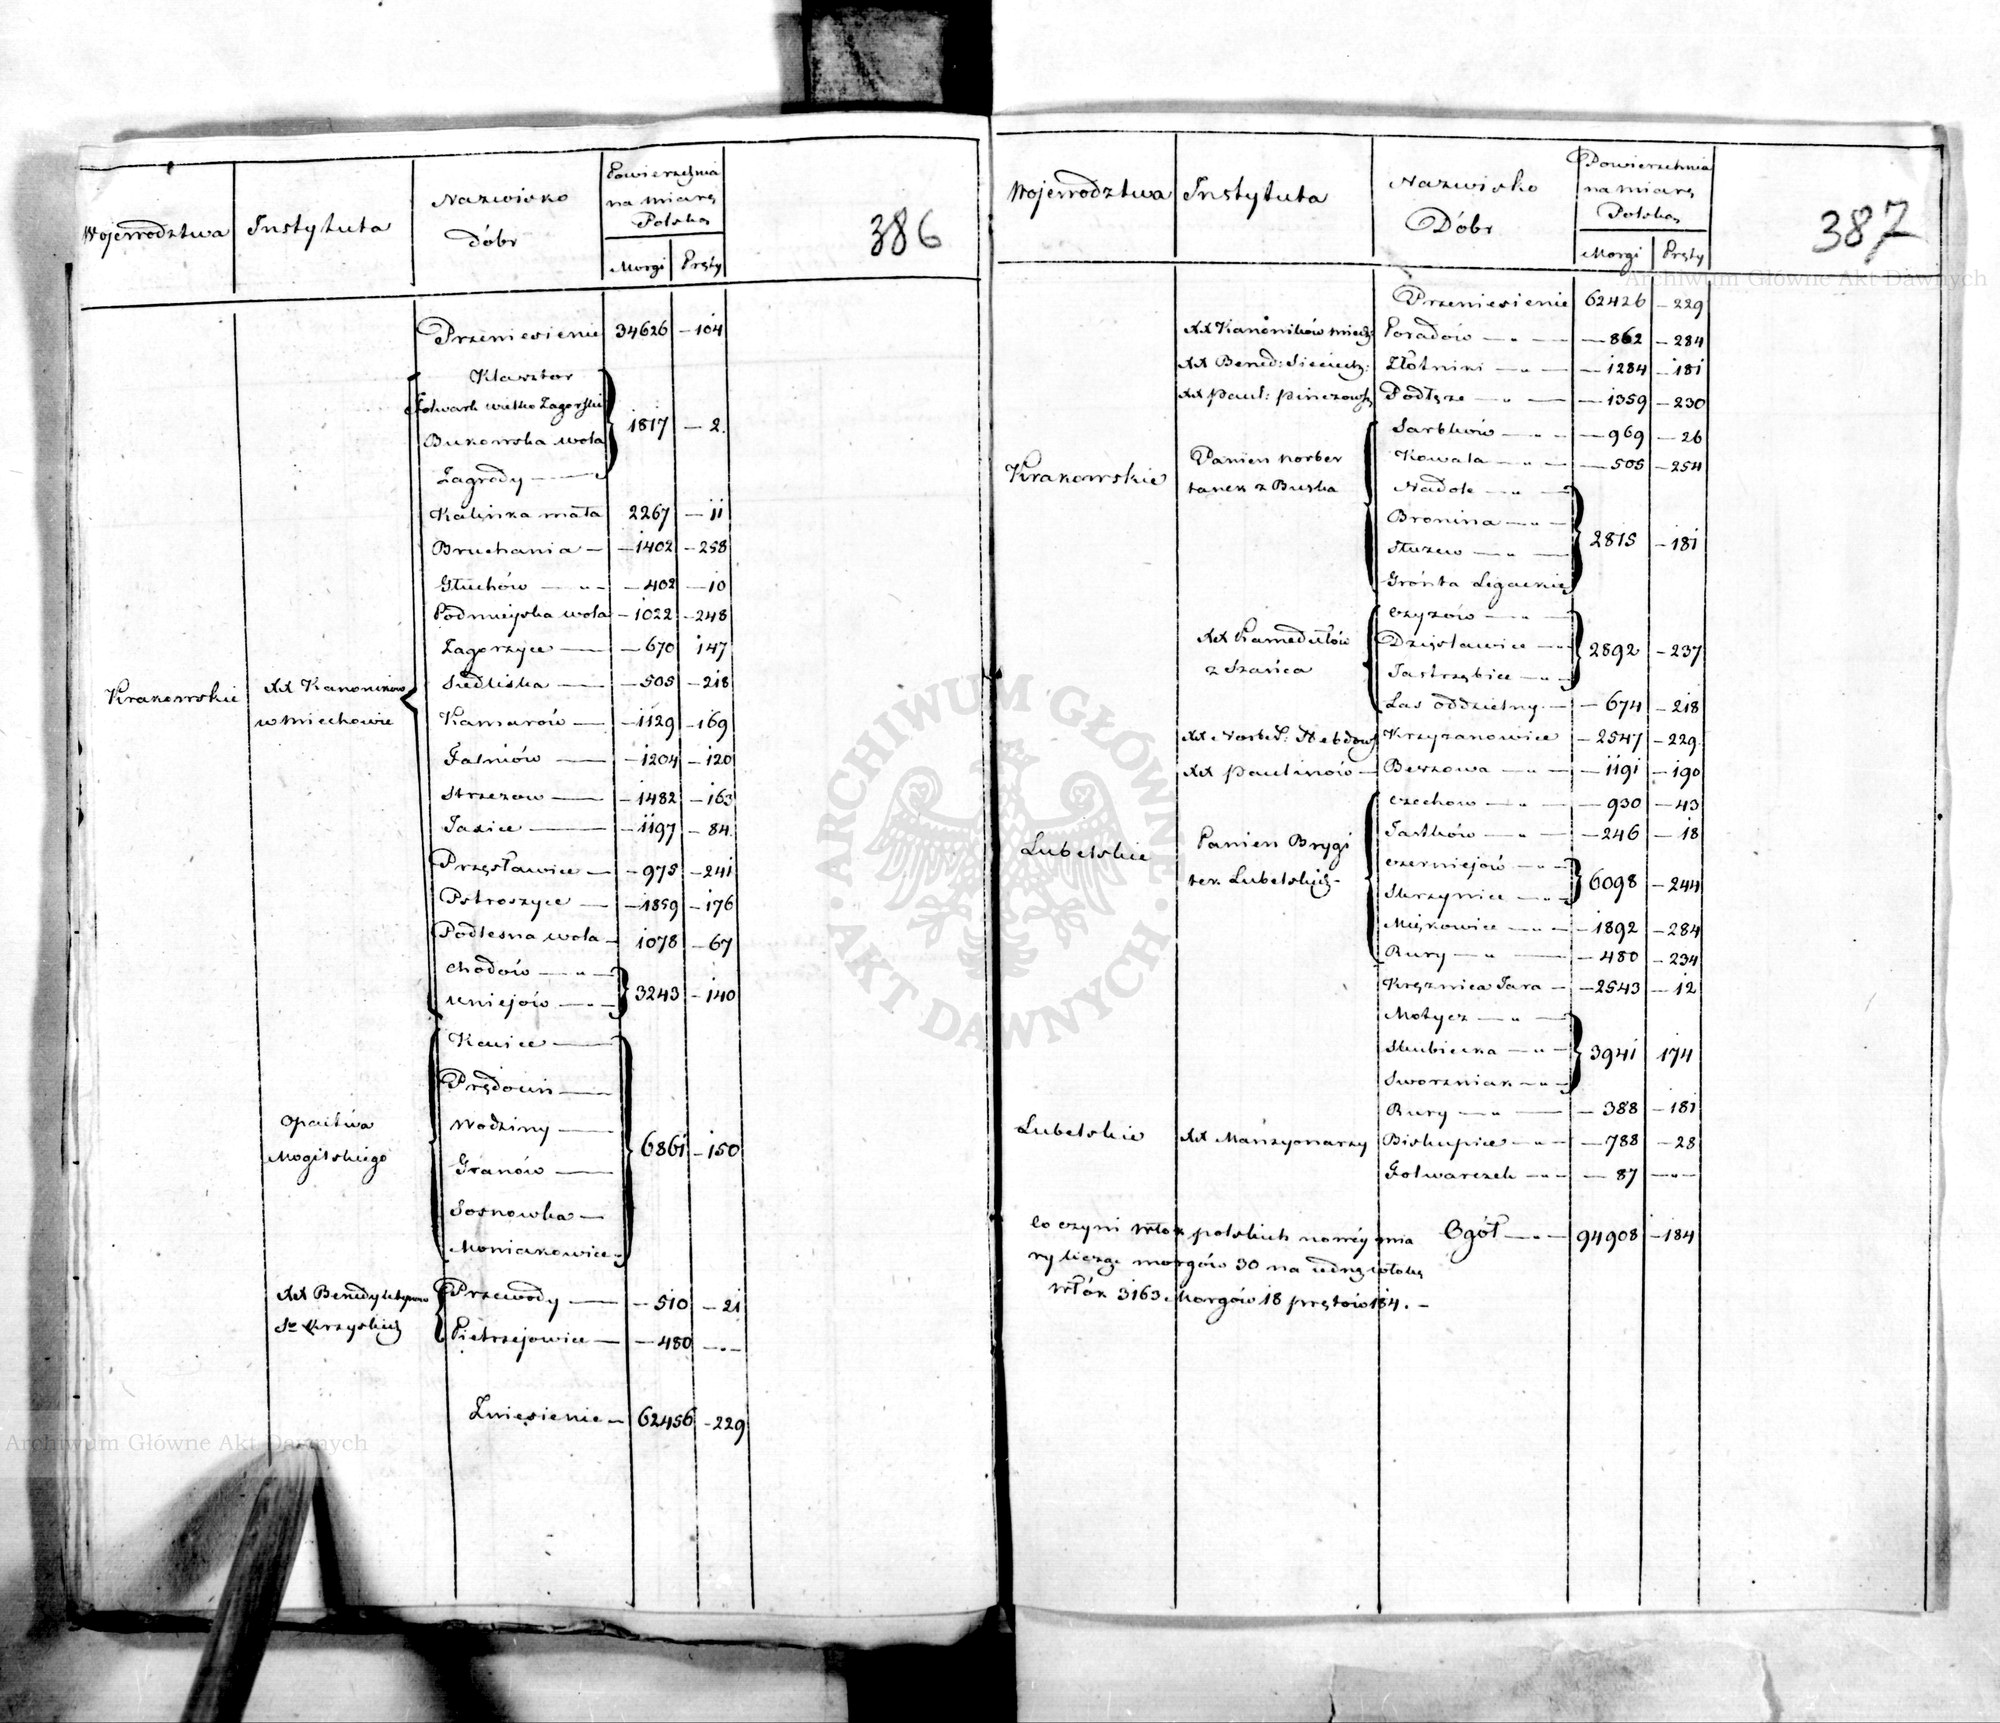 386
Wojewodztwa Instytuta Nazwisko Dóbr Powierzchnia na miarę Polską Morgi Pręty
Przeniesienie 34626 — 104
Krakowskie XX Kanoników w Miechowie
Klasztor
Folwark wielko Zagorski
Bukowska wola 1817 — 2.
Zagrody —
Kalinka mała 2267 — 11
Bruchania — 1402 — 258
Głuchów — „ — 402 — 10
Podmiejska wola — 1022 — 248
Zagorzyce — 670 147
Siedliska — 505 — 218
Kamarów — 1129 — 169
Falniów — 1204 — 120
Strzezow — 1482 — 163
Jaxice — 1197 — 84.
Przęsławice — 975 — 241
Pstroszyce — 1859 — 176
Podlesna wola — 1078 — 67
Chodów — „ —
Uniejów — „ — 3243 — 140
Opactwa Mogilskiego
Kacice —
Prędocin —
Wodziny —
Granów — 6861 — 150
Sosnowka —
Moniakowice —
XX Benedyktynów Sto Krzyskich
Przewody — 510 — 21
Pietrzejowice — 480 — „ —
Zniesienie — 62456 — 229
387
Wojewodztwa Instytuta Nazwisko Dóbr Powierzchnia na miarę Polską Morgi Pręty
Przeniesienie 62426 — 229
XX Kanoników miech: Poradów — „ — 862 — 284
XX Bened: Sieciech: Złotniki — „ — 1284 — 181
XX Paul: Pinczowsk Podłęze — „ — 1359 — 230
Krakowskie Panien Norber tanek z Buska
Sarbków — „ — 969 — 26
Kowala — „ — 505 — 254
Nadole — „ —
Bronina — „ —
Służew — „ — 2815 — 181
Grónta Legackie
XX Kamedułów z Szańca
Czyzów — „ —
Dzięsławice — „ — 2892 — 237
Jastrzębice — „ —
Las oddzielny — 674 — 218
XX Norbet: Hebdow Krzyzanowice — 2547 — 229
XX Paulinów — Beszowa — „ — 1191 — 190
Lubelskie Panien Brygi tek Lubelskich
Czechow — „ — 930 — 43
Jastków — „ — 246 — 18
Czerniejów — „ —
Skrzynice — „ — 6098 — 244
Mięćkowice — „ — 1892 — 284
Rury — „ — 480 — 234
Krężnica Jara — 2543 — 12
Motycz — „ —
Skubicka — „ — 3941 174
Sworzniak — „ —
Rury — „ — 388 — 181
Lubelskie XX Mansyonarzy Biskupice — „ — 788 — 28
Folwarczek — „ — 87 — „ —
Ogół — „ — 94908 — 184
Co czyni włók polskich nowéy mia
ry licząc morgów 30 na jedną włokę
włók 3163 Morgów 18 prętów 184. —
Archiwum Główne Akt Dawnych
ARCHIWUM GŁÓWNE · AKT DAWNYCH ·
Archiwum Główne Akt Dawnych